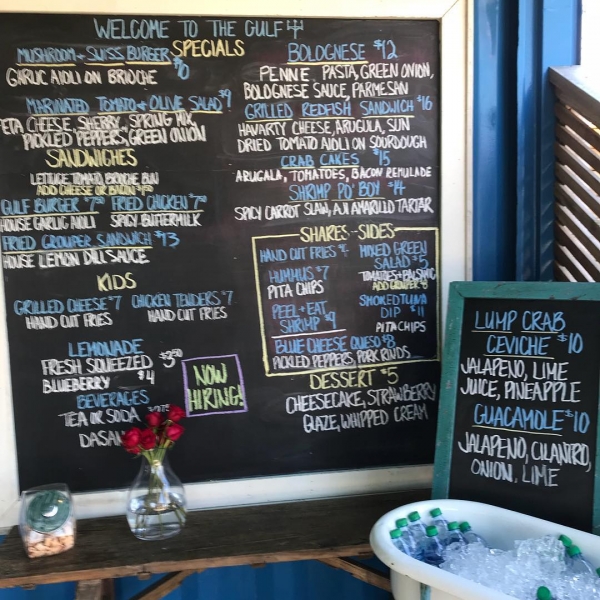 WELCOME TO THE GULF
SPECIALS
MUSHROOM + SWISS BURGER
GARLIC AIOLI ON BRIOCHE
MARINATED TOMATO + OLIVE SALAD $9
FETA CHEESE, SHERRY, SPRING MIX,
PICKLED PEPPERS, GREEN ONION
SANDWICHES
LETTUCE, TOMATO, BRIOCHE BUN
ADD CHEESE OR BACON
GULF BURGER $7 FRIED CHICKEN $7
HOUSE GARLIC AIOLI SPICY BUTTERMILK
FRIED GROUPER SANDWICH $13
HOUSE LEMON DILL SAUCE
KIDS
GRILLED CHEESE $7 CHICKEN TENDERS $7
HAND CUT FRIES HAND CUT FRIES
LEMONADE
FRESH SQUEEZED $3.50
BLUEBERRY $4
BEVERAGES
TEA OR SODA
DASANI
NOW
HIRING!
BOLOGNESE $12
PENNE PASTA, GREEN ONION,
BOLOGNESE SAUCE, PARMESAN
GRILLED REDFISH SANDWICH $16
HAVARTY CHEESE, ARUGULA, SUN
DRIED TOMATO AIOLI ON SOURDOUGH
CRAB CAKES $15
ARUGALA, TOMATOES, BACON REMULADE
SHRIMP PO' BOY $14
SPICY CARROT SLAW, AJI AMARILLO TARTAR
SHARES - SIDES
HAND CUT FRIES
HUMMUS $7
PITA CHIPS
PEEL + EAT
SHRIMP $9
MIXED GREEN
SALAD $5
TOMATOES + BALSAMIC
ADD GROUPER $8
SMOKED TUNA
DIP $11
PITA CHIPS
BLUE CHEESE QUESO $8
PICKLED PEPPERS, PORK RINDS
DESSERT $5
CHEESECAKE, STRAWBERRY
GLAZE, WHIPPED CREAM
LUMP CRAB
CEVICHE $10
JALAPENO, LIME
JUICE, PINEAPPLE
GUACAMOLE $10
JALAPENO, CILANTRO,
ONION, LIME